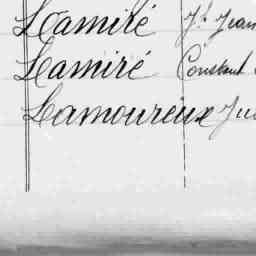 Lamiré J. Jean
Lamiré Constant
Lamoureux